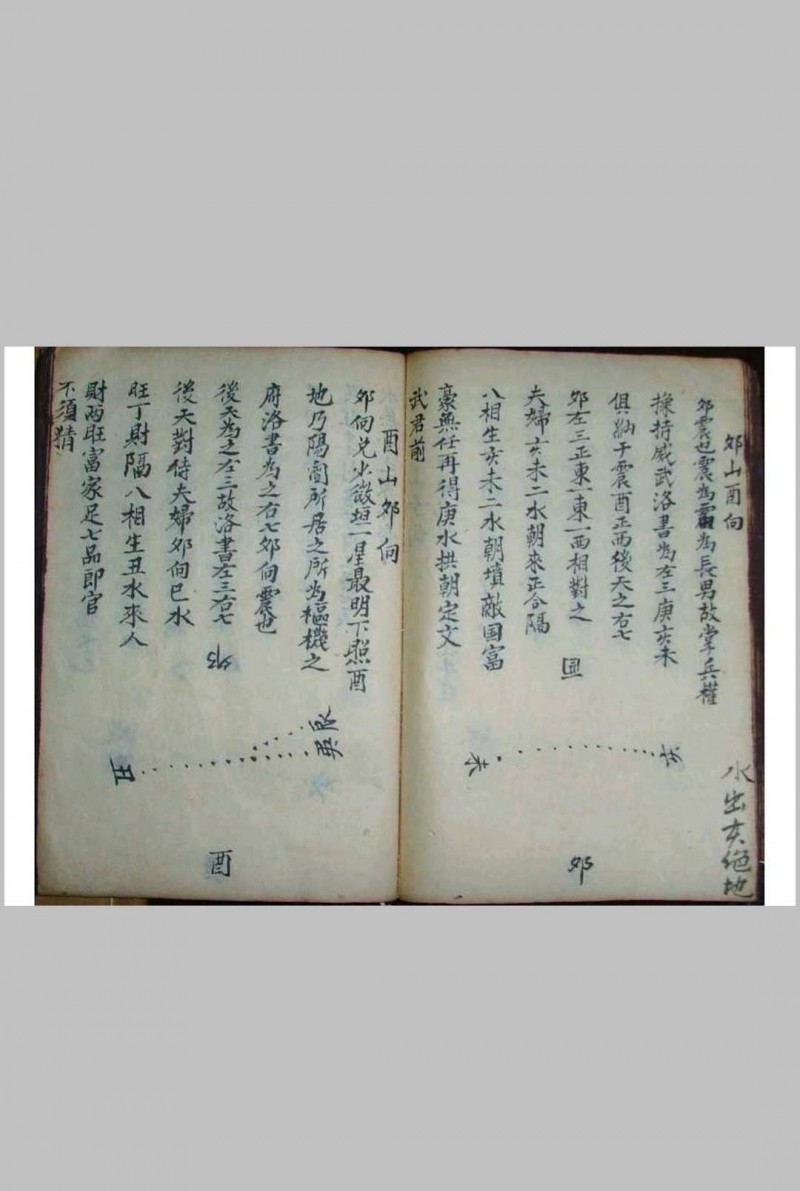 夘山酉向
夘震也震為雷為長男故掌兵權
操持威武洛書為左三庚亥未
俱納于震酉正西後天之右七
夘左三正東一東一西相對之
夫婦亥未二水朝來正合隔
八相生亥未二水朝墳敵国富
豪無任再得庚水拱朝定文
武君前
水出亥絕地
未
夘
酉山夘向
夘向兌少微垣一星最明下照酉
地乃陽闔所居之所為樞機之
府洛書為之右七夘向震也
後天為之左三故洛書左三右七
後天對待夫婦夘向巳水
旺丁財隔八相生丑水來人
財両旺富家足七品郎官
不須猜
夘
丑
酉